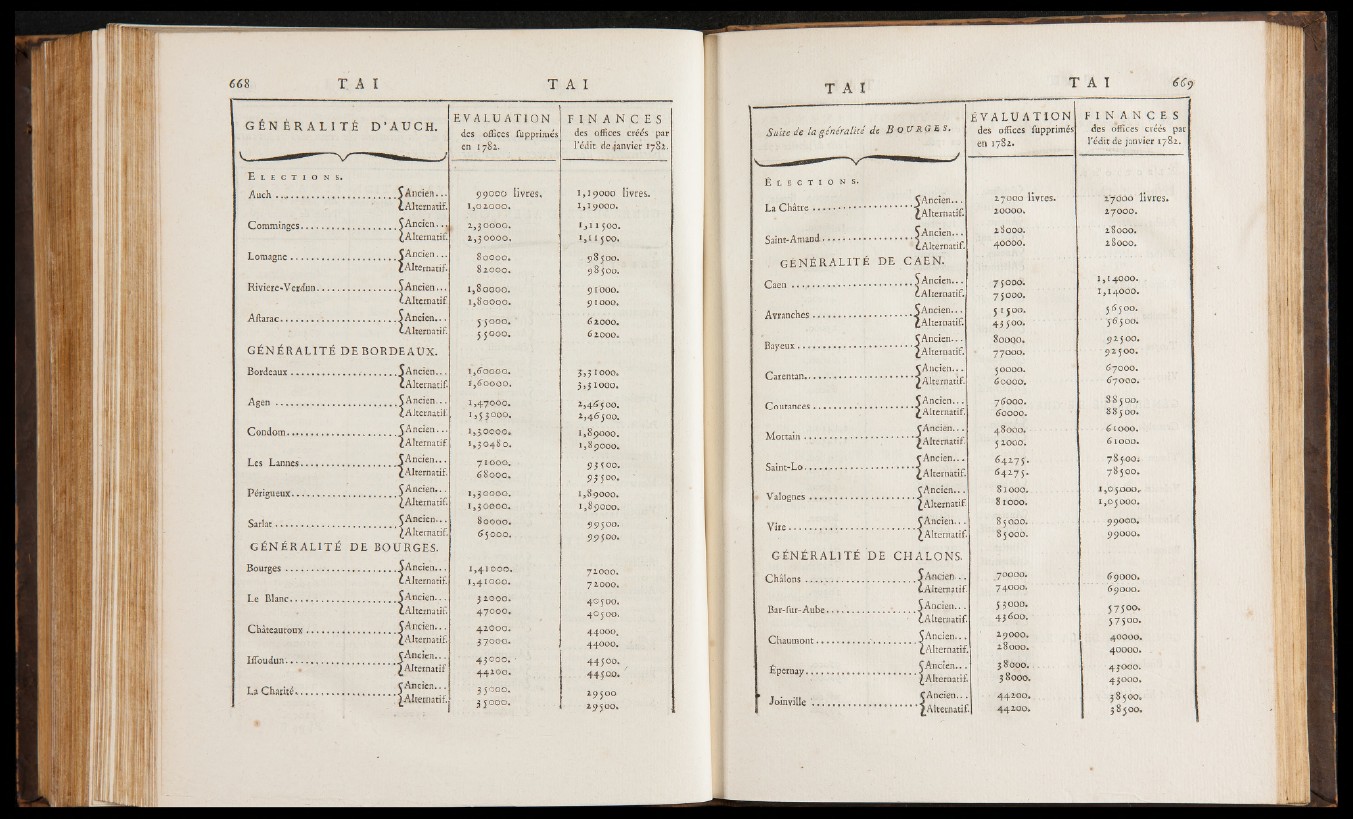 668 T A I T A I
GÉNÉRALITÉ D'AUCH.
EVALUATION
des offices ſupprimés
en 1782.
FINANCES
des offices créés par
l'édit de janvier 1782.
ELECTIONS.
Auch ........ { Ancien... 99000 livres. 1,19000 livres.
Alternatif. 1,02000. 1,19000.
Comminges........ { Ancien... 2,30000. 1,11500.
Alternatif. 2,30000. 1,11500.
Lomagne ........ { Ancien... 80000. 98500.
Alternatif. 82000. 98500.
Riviere-Verdun........ { Ancien... 1,80000. 91000.
Alternatif. 1,80000. 91000.
Aſtarac........ { Ancien... 55000. 62000.
Alternatif. 55000. 62000.
GÉNÉRALITÉ DE BORDEAUX.
Bordeaux ........ { Ancien... 1,60000. 3,31000.
Alternatif. 1,60000. 3,31000.
Agen ........ { Ancien... 1,47000. 2,46500.
Alternatif. 1,53000. 2,46500.
Condom........ { Ancien... 1,30000. 1,89000.
Alternatif. 1,30480. 1,89000.
Les Lannes........ { Ancien... 71000. 93500.
Alternatif. 68000. 93500.
Périgueux........ { Ancien... 1,30000. 1,89000.
Alternatif. 1,30000. 1,89000.
Sarlat ........ { Ancien... 80000. 99500.
Alternatif. 65000. 99500.
GÉNÉRALITÉ DE BOURGES.
Bourges ........ { Ancien... 1,41000. 72000.
Alternatif. 1,41000. 72000.
Le Blanc........ { Ancien... 32000. 40500.
Alternatif. 47000. 40500.
Châteauroux ........ { Ancien... 42000. 44000.
Alternatif. 37000. 44000.
Iſſoudun........ { Ancien... 43000. 44500.
Alternatif 44200. 44500.
La Charité........ { Ancien... 35000. 29500
Alternatif. 35000. 29500.
T A I T A I 669
Suite de la généralité de BOURGES.
ÉVALUATION
des offices ſupprimés
en 1782.
FINANCES
des offices créés par
l'édit de janvier 1782.
ÉLECTIONS.
La Châtre ........ { Ancien... 27000 livres. 27000 livres.
Alternatif. 20000. 27000.
Saint-Amand........ { Ancien... 28000. 28000.
Alternatif. 40000. 28000.
GÉNÉRALITÉ DE CAEN.
Caen ........ { Ancien... 75000. 1,14000.
Alternatif. 75000. 1,14000.
Avranches ........ { Ancien... 51500. 56500.
Alternatif. 43500. 56500.
Bayeux ........ { Ancien... 80000. 92500.
Alternatif. 77000. 92500.
Carentan........ { Ancien... 50000. 67000.
Alternatif. 60000. 67000.
Coutances ........ { Ancien... 76000. 88500.
Alternatif. 60000. 88500.
Mortain ........ { Ancien... 48000. 61000.
Alternatif. 52000. 61000.
Saint-Lo........ { Ancien... 64275. 78500.
Alternatif. 64275. 78500.
Valognes ........ { Ancien... 81000. 1,05000.
Alternatif. 81000. 1,05000.
Vire ........ { Ancien... 85000. 99000.
Alternatif. 85000. 99000.
GÉNÉRALITÉ DE CHALONS.
Châlons ........ { Ancien... 70000. 69000.
Alternatif. 74000. 69000.
Bar-ſur-Aube........ { Ancien... 53000. 57500.
Alternatif. 43600. 57500.
Chaumont........ { Ancien... 29000. 40000.
Alternatif. 28000. 40000.
Épernay........ { Ancien... 38000. 43000.
Alternatif. 38000. 43000.
Joinville ........ { Ancien... 44200. 38500.
Alternatif. 44200. 38500.